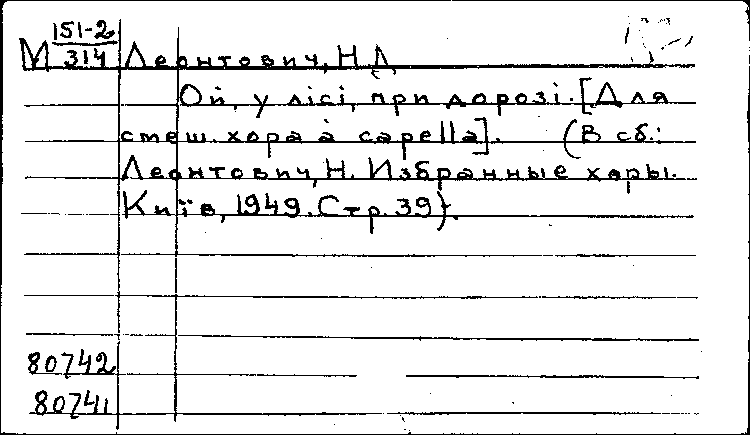 М 151-2
314 Леонтович, Н.Д.
Ой, у лісі, при дорозі. [Для
смеш. хора a capella]. (В сб.:
Леонтович, Н. Избранные хоры.
Київ, 1949. Стр. 39).
80742
80741